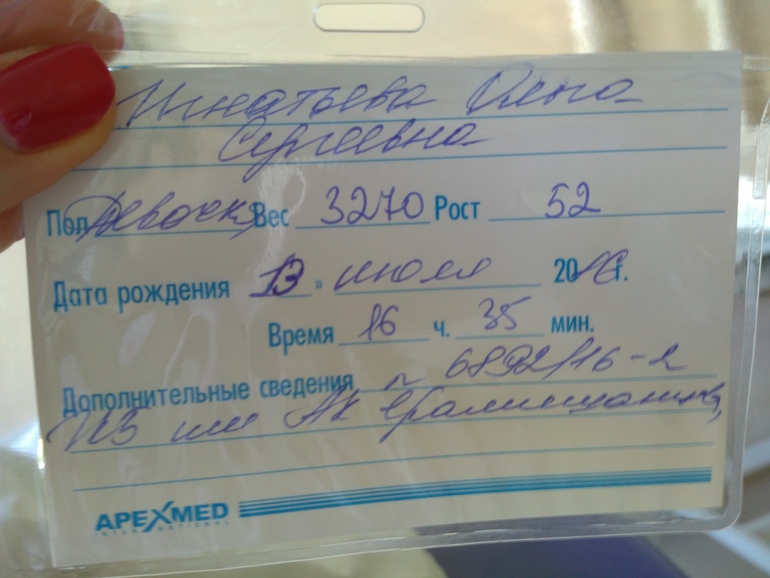 Игнатьева Ольга
Сергеевна
Пол Девочка Вес 3270 Рост 52
Дата рождения 13 » июля 2016 г.
Время 16 ч. 35 мин.
Дополнительные сведения 6892/16-
АК
APEXMED
INTERNATIONAL